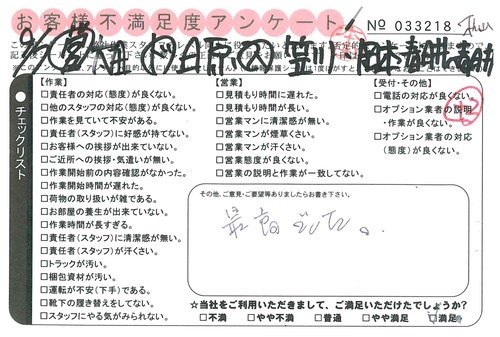 お客様不満足度アンケート
No 033218
チェックリスト
【作業】
□責任者の対応(態度)が良くない。
□他のスタッフの対応(態度)が良くない。
□作業を見ていて安心がない。
□責任者(スタッフ)に好感が持てない。
□お客様への挨拶が出来ていない。
□ご近所への挨拶・気遣いが無い。
□作業開始前の内容確認がなかった。
□作業開始時間が遅れた。
□荷物の取り扱いが雑である。
□お部屋の養生が出来ていない。
□作業時間が長すぎる。
□責任者(スタッフ)に清潔感が無い。
□責任者(スタッフ)が汗くさい。
□トラックが汚い。
□梱包資材が汚い。
□運転が不安(下手)である。
□靴下の履き替えをしてない。
□スタッフにやる気がみられない。
【営業】
□見積もり時間に遅れた。
□見積もり時間が長い。
□営業マンに清潔感が無い。
□営業マンが煙草くさい。
□営業マンが汗くさい。
□営業態度が良くない。
□営業の説明と作業が一致してない。
【受付・その他】
□電話の対応が良くない。
□オプション業者の説明
・作業が良くない。
□オプション業者の対応
(態度)が良くない。
その他、ご意見・ご要望等ありましたらお書き下さい。
最高でした。
☆当社をご利用いただきまして、ご満足いただけたでしょうか?
□不満 □やや不満 □普通 □やや満足 □満足